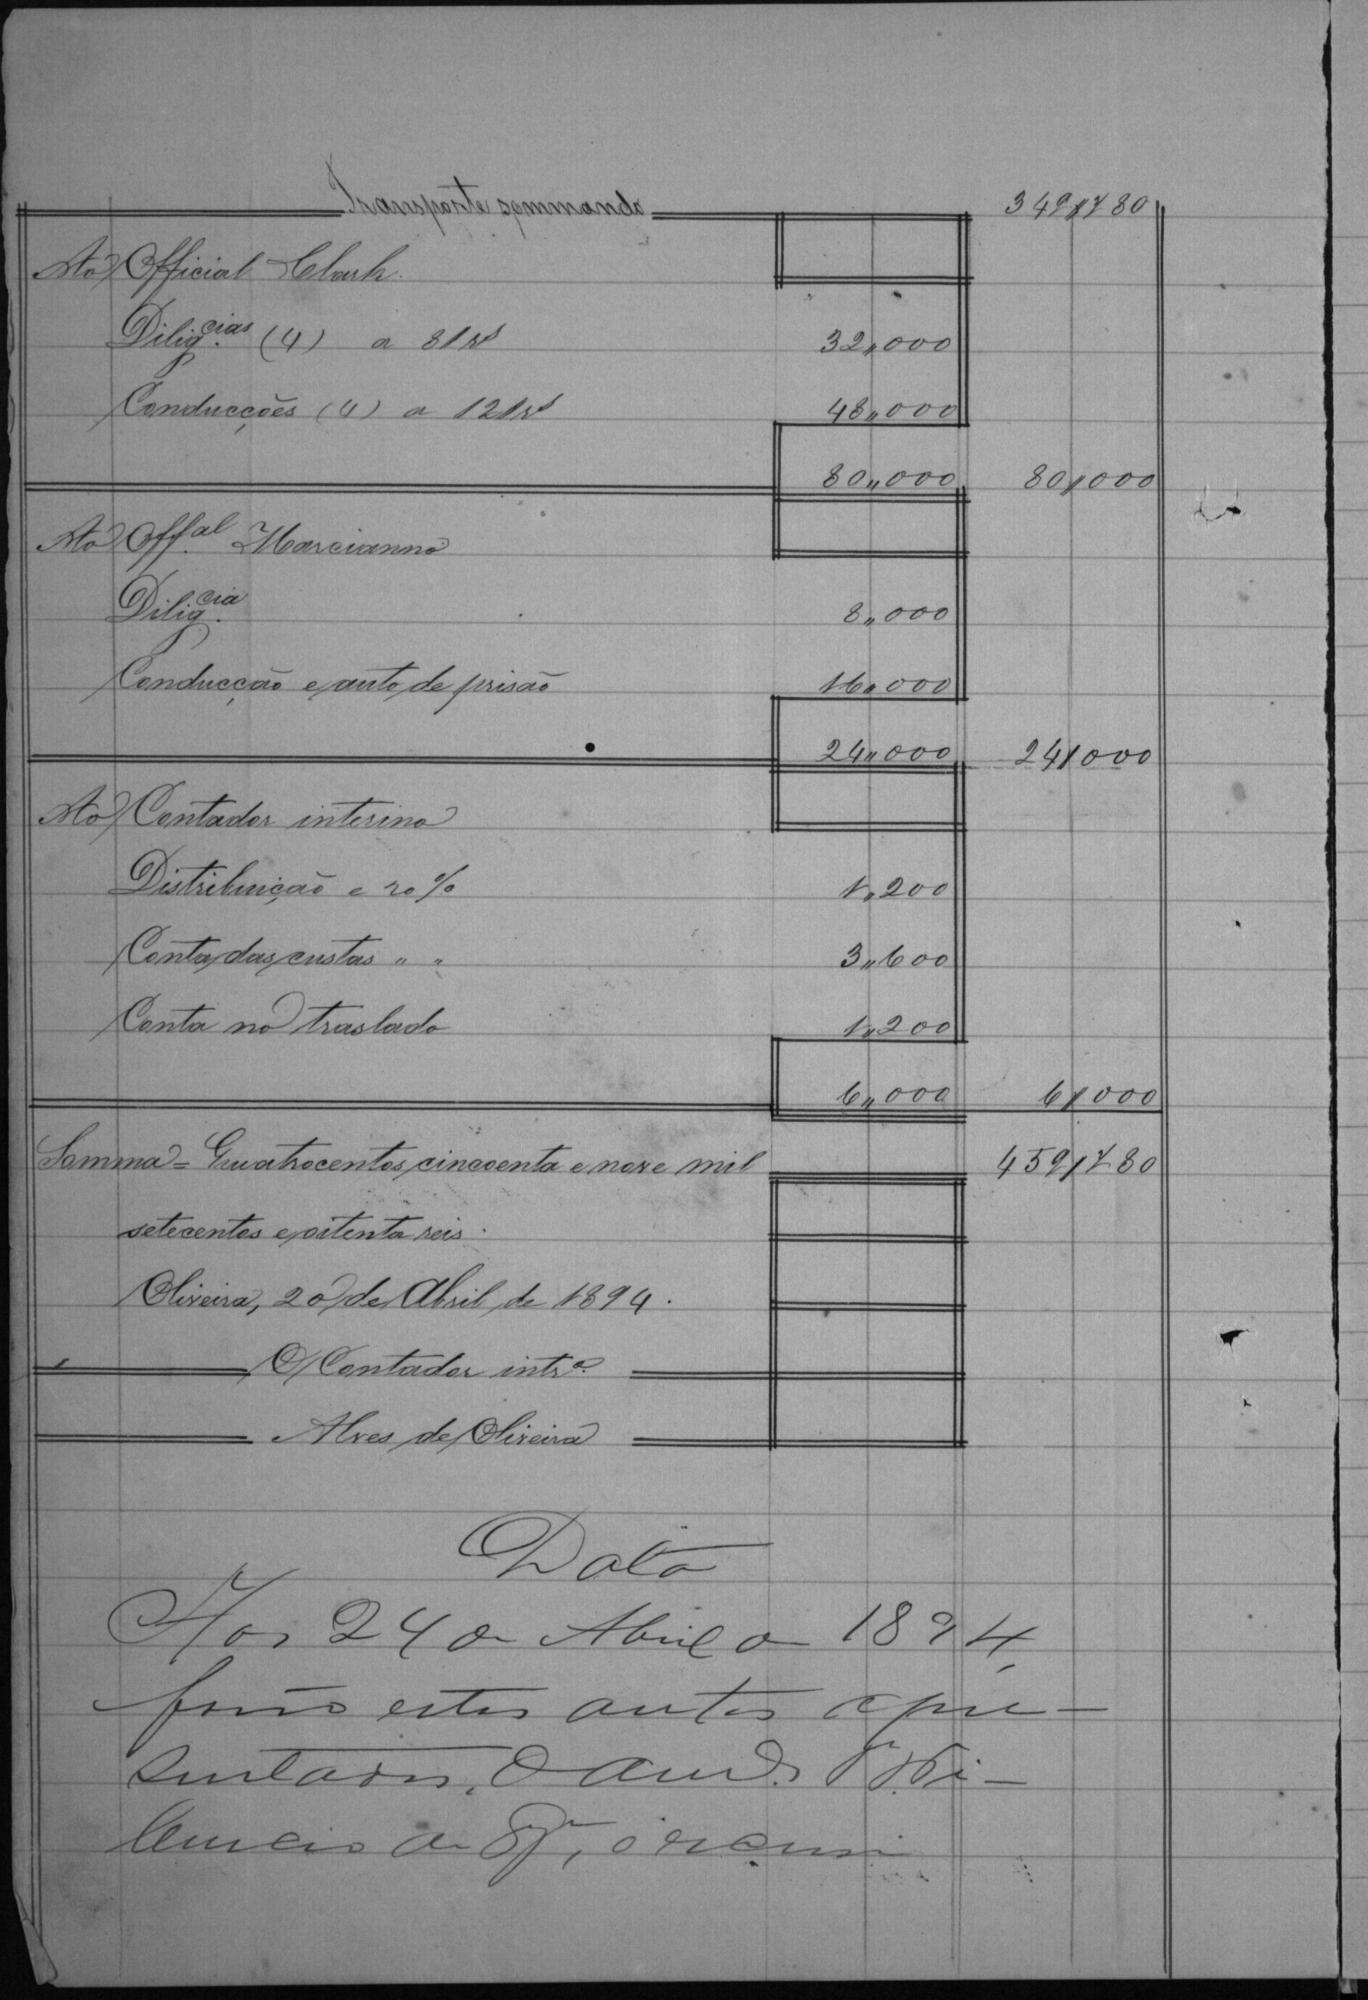 Transporte sommando 349$780
Ao Official Clark.
Dilig.cias (4) a 8$rs 32,,000
Conducções (4) a 12$rs 48,,000
80,,000 80$000
Ao Off.al Marcianno
Dilig.cia 8,,000
Conducção e auto de prisão 16,,000
24,,000 24$000
Ao Contador interino
Distribuição e 20% 1,,200
Conta das custas " " 3,,600
Conta no traslado 1,,200
6,,000 6$000
Somma = Quatrocentos cincoenta e nove mil 459$780
setecentos e oitenta reis.
Oliveira, 20 de Abril de 1894.
O Contador intr.o
Alves de Oliveira
Data
Aos 24 de Abril de 1894,
forão estes autos apre-
sentados. O
o escrevi